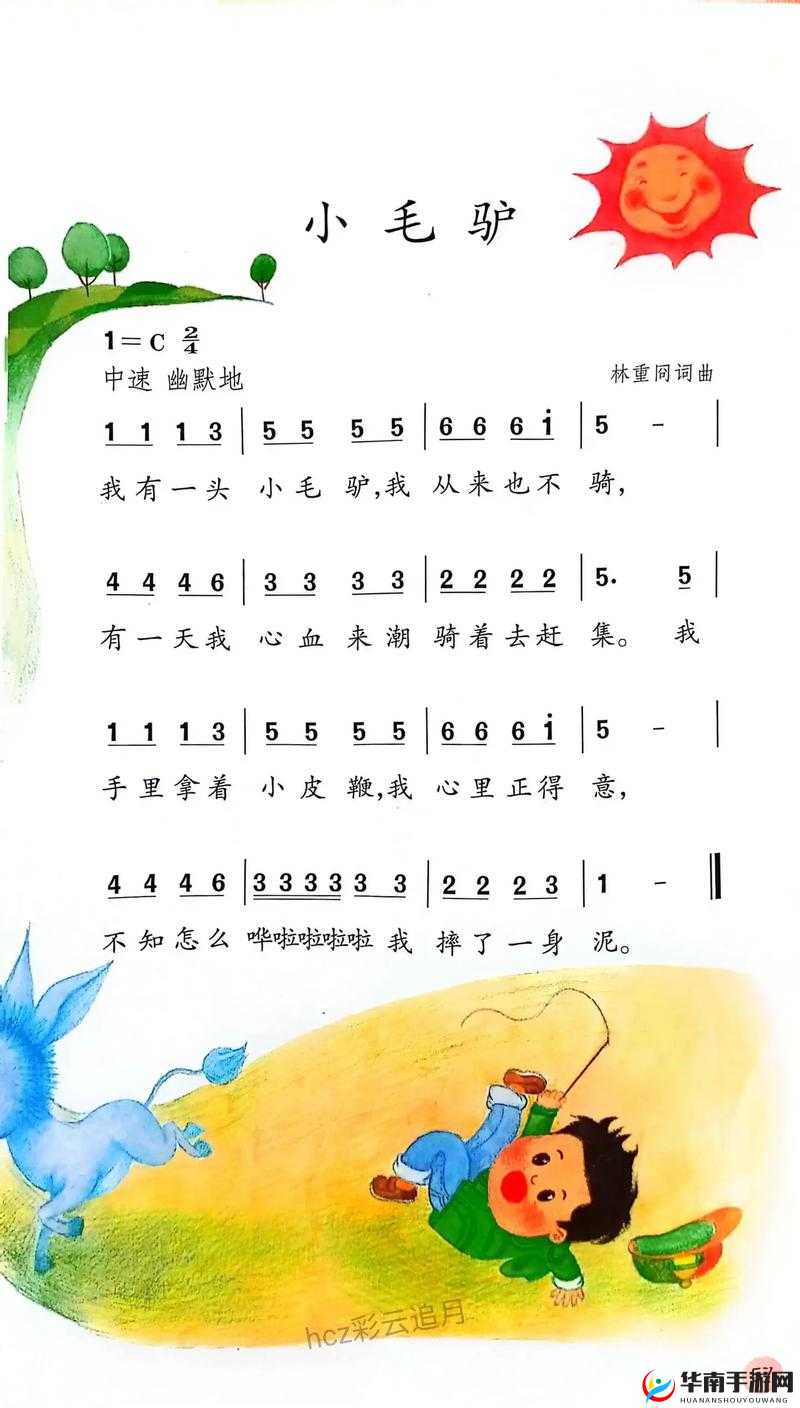 小毛驴
1=C 2/4
中速 幽默地
林重冏词曲
1 1 1 3 | 5 5 5 5 | 6 6 6 i | 5 - |
我有一头 小毛驴,我 从来也不 骑,
4 4 4 6 | 3 3 3 3 | 2 2 2 2 | 5. 5 |
有一天我 心血来潮 骑着去赶 集。我
1 1 1 3 | 5 5 5 5 | 6 6 6 i | 5 - |
手里拿着 小皮鞭,我 心里正得 意,
4 4 4 6 | 3 3 3 3 3 3 | 2 2 2 3 | 1 - ‖
不知怎么 哗啦啦啦啦 我 摔了一身 泥。
hcz彩云追月
华南手游网
HUANANSHOUYOUWANG